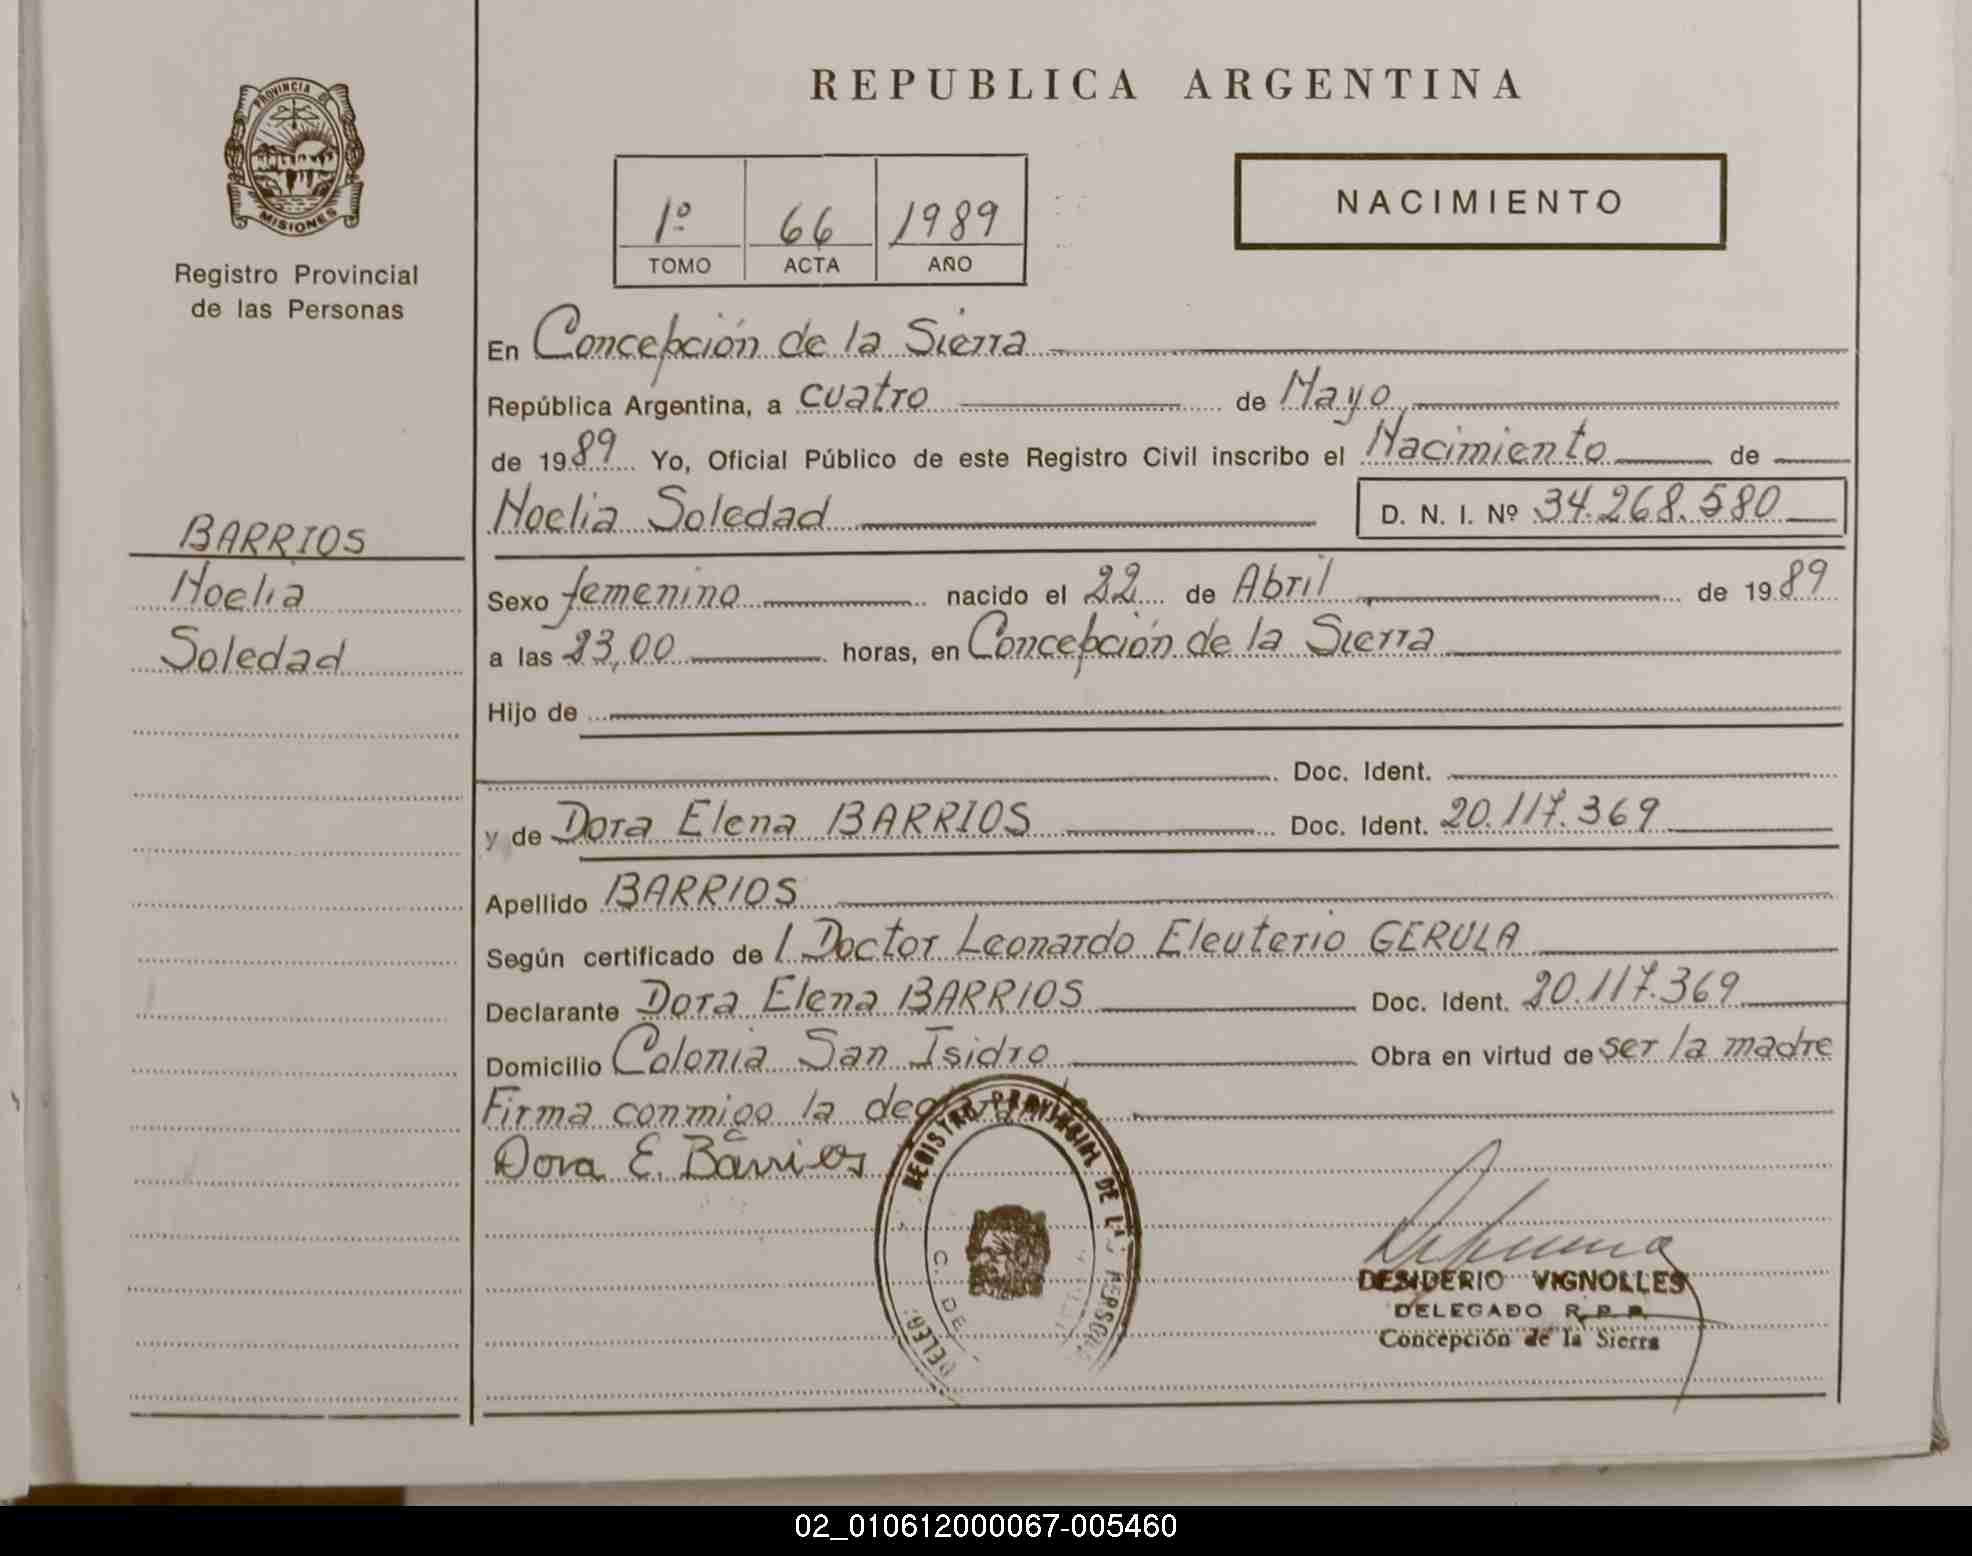 REPUBLICA ARGENTINA
PROVINCIA DE
MISIONES
Registro Provincial
de las Personas
NACIMIENTO
1º 66 1989
TOMO ACTA AÑO
En Concepción de la Sierra
República Argentina, a cuatro de Mayo
de 1989 Yo, Oficial Público de este Registro Civil inscribo el Nacimiento de
Noelia Soledad D. N. I. Nº 34.268.580
BARRIOS
Noelia
Soledad
Sexo femenino nacido el 22 de Abril de 1989
a las 23,00 horas, en Concepción de la Sierra
Hijo de
Doc. Ident.
y de Dora Elena BARRIOS Doc. Ident. 20.117.369
Apellido BARRIOS
Según certificado de l Doctor Leonardo Eleuterio GERULA
Declarante Dora Elena BARRIOS Doc. Ident. 20.117.369
Domicilio Colonia San Isidro Obra en virtud de ser la madre
Firma conmigo la
Dora E. Barrios
REGISTRO PROVINCIAL DE LAS
DESIDERIO VIGNOLLES
DELEGADO R. P. P.
Concepción de la Sierra
02_010612000067-005460